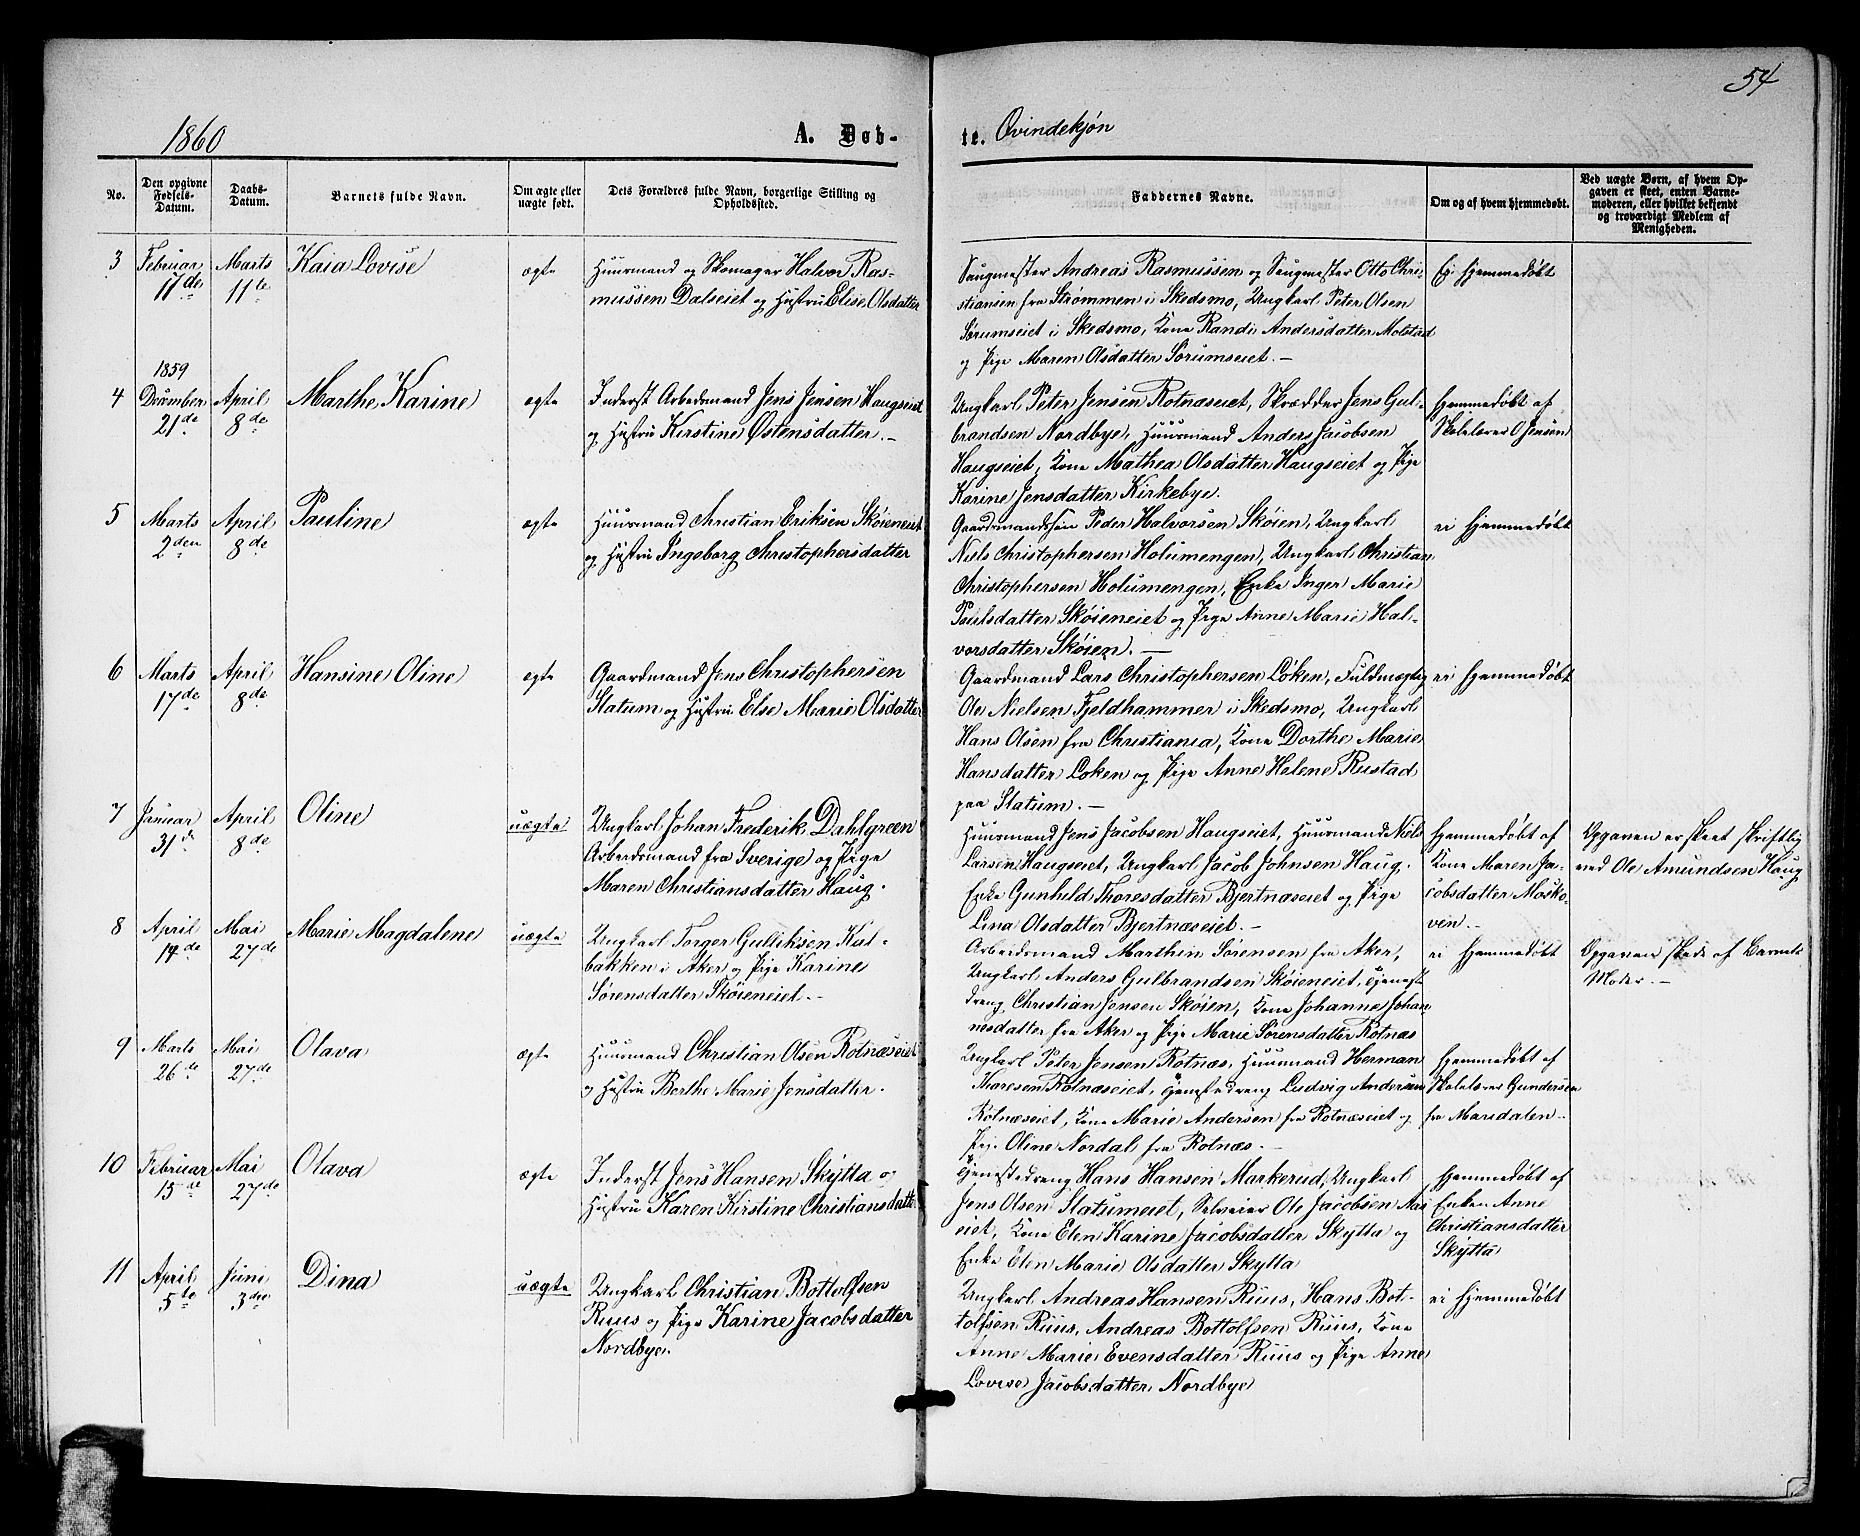 54
1860
A. Døb-
te. Qvindekjøn
No.
Den opgivne Fødsels-Datum.
Daabs-Datum.
Barnets fulde Navn.
Om ægte eller uægte født.
Dets Forældres fulde Navn, borgerlige Stilling og Opholdssted.
Faddernes Navne.
Om og af hvem hjemmedøbt.
Ved uægte Børn, af hvem Opgaven er skeet, enten Barnemoderen, eller hvilket bekjendt og troværdigt Medlem af Menigheden.
3 Februar 17de Marts 11te Kaia Lovise ægte
Huusmand og Skomager Halvor Ras-
mussen Dalseiet og Hustru Elise Olsdatter
Saugmester Andreas Rasmussen og Saugmester Otto Chri-
stiansen fra Strømmen i Skedsmo, Ungkarl Peter Olsen
Sørumseiet i Skedsmo, Kone Randi Andersdatter Molstad
og Pige Maren Olsdatter Sørumseiet. —
Ei hjemmedøbt
1859
4 December 21de April 8de Marthe Karine ægte
Inderst Arbedsmand Jens Jensen Haugseiet
og Hustru Kirstine Østensdatter. —
Ungkarl Peter Jensen Rotnæseiet, Skrædder Jens Gul-
brandsen Nordbye, Huusmand Anders Jacobsen
Haugseiet, Kone Mathea Olsdatter Haugseiet og Pige
Karine Jensdatter Kirkebye.
Hjemmedøbt af
Skolelærer O Jensen
5 Marts 2den April 8de Pauline ægte
Huusmand Christian Eriksen Skøieneiet
og Hustru Ingeborg Christophersdatter
Gaardmandssøn Peder Halvorsen Skøien, Ungkarl
Niels Christophersen Holumengen, Ungkarl Christian
Christophersen Holumengen, Enke Inger Marie
Paulsdatter Skøieneiet og Pige Anne Marie Hal-
vorsdatter Skøien. —
ei hjemmedøbt
6 Marts 17de April 8de Hansine Oline ægte
Gaardmand Jens Christophersen
Slatum og Hustru Else Marie Olsdatter
Gaardmand Lars Christophersen Løken, Fuldmægtig
Ole Nielsen Fjeldhammer i Skedsmo, Ungkarl
Hans Olsen fra Christiania, Kone Dorthe Marie
Hansdatter Løken og Pige Anne Helene Rustad
paa Slatum. —
ei hjemmedøbt
7 Januar 31de April 8de Oline uægte
Ungkarl Johan Frederik Dahlgreen
Arbeidsmand fra Sverige og Pige
Maren Christiansdatter Haug.
Huusmand Jens Jacobsen Haugseiet, Huusmand Niels
Larsen Haugseiet, Ungkarl Jacob Johnsen Haug.
Enke Gunhild Thoresdatter Bjertnæseiet og Pige
Lina Olsdatter Bjertnæseiet. —
Hjemmedøbt af
Kone Maren Ja-
cobsdatter Mosko-
ven. —
Opgaven er skeet skriftlig
ved Ole Amundsen Haug
8 April 14de Mai 27de Marie Magdalene uægte
Ungkarl Torger Gulliksen Kal-
bakken i Aker og Pige Karine
Sørensdatter Skøieneiet. —
Arbeidsmand Marthin Sørensen fra Aker,
Ungkarl Anders Gulbrandsen Skøieneiet, Tjeneste
dreng Christian Jensen Skøien, Kone Johanne Johan
nesdatter fra Aker og Pige Marie Sørensdatter Rotnæs
ei hjemmedøbt
Opgaven skede af Barnets
Moder. —
9 Marts 26de Mai 27de Olava ægte
Huusmand Christian Olsen Rotnæseiet
og Hustru Berthe Marie Jensdatter.
Ungkarl Peter Jensen Rotnæs, Huusmand Herman
Thoresen Rotnæseiet, Tjenstedreng Ludvig Andersen
Rotnæseiet, Kone Marie Andersen fra Rotnæseiet og
Pige Oline Nordal fra Rotnæs. —
Hjemmedøbt af
Skolelærer Gundersen
fra Maridalen. —
10 Februar 15de Mai 27de Olava ægte
Inderst Jens Hansen Skytta og
Hustru Karen Kirstine Christiansdatt
Tjenestedreng Hans Hansen Markerud, Ungkarl
Jens Olsen Slatumeiet, Selveier Ole Jacobsen Aas
eiet, Kone Elen Karine Jacobsdatter Skytta og
Enke Elen Marie Olsdatter Skytta
Hjemmedøbt af
Enken Anne
Christiansdatter
Skytta
11 April 5te Juni 3die Dina uægte
Ungkarl Christian Bottolfsen
Ruus og Pige Karine Jacobsdatter
Nordbye.
Ungkarl Andreas Hansen Ruus, Hans Bot-
tolfsen Ruus, Andreas Bottolfsen Ruus, Kone
Anne Marie Evensdatter Ruus og Pige Anne
Lovise Jacobsdatter Nordbye
ei hjemmedøbt